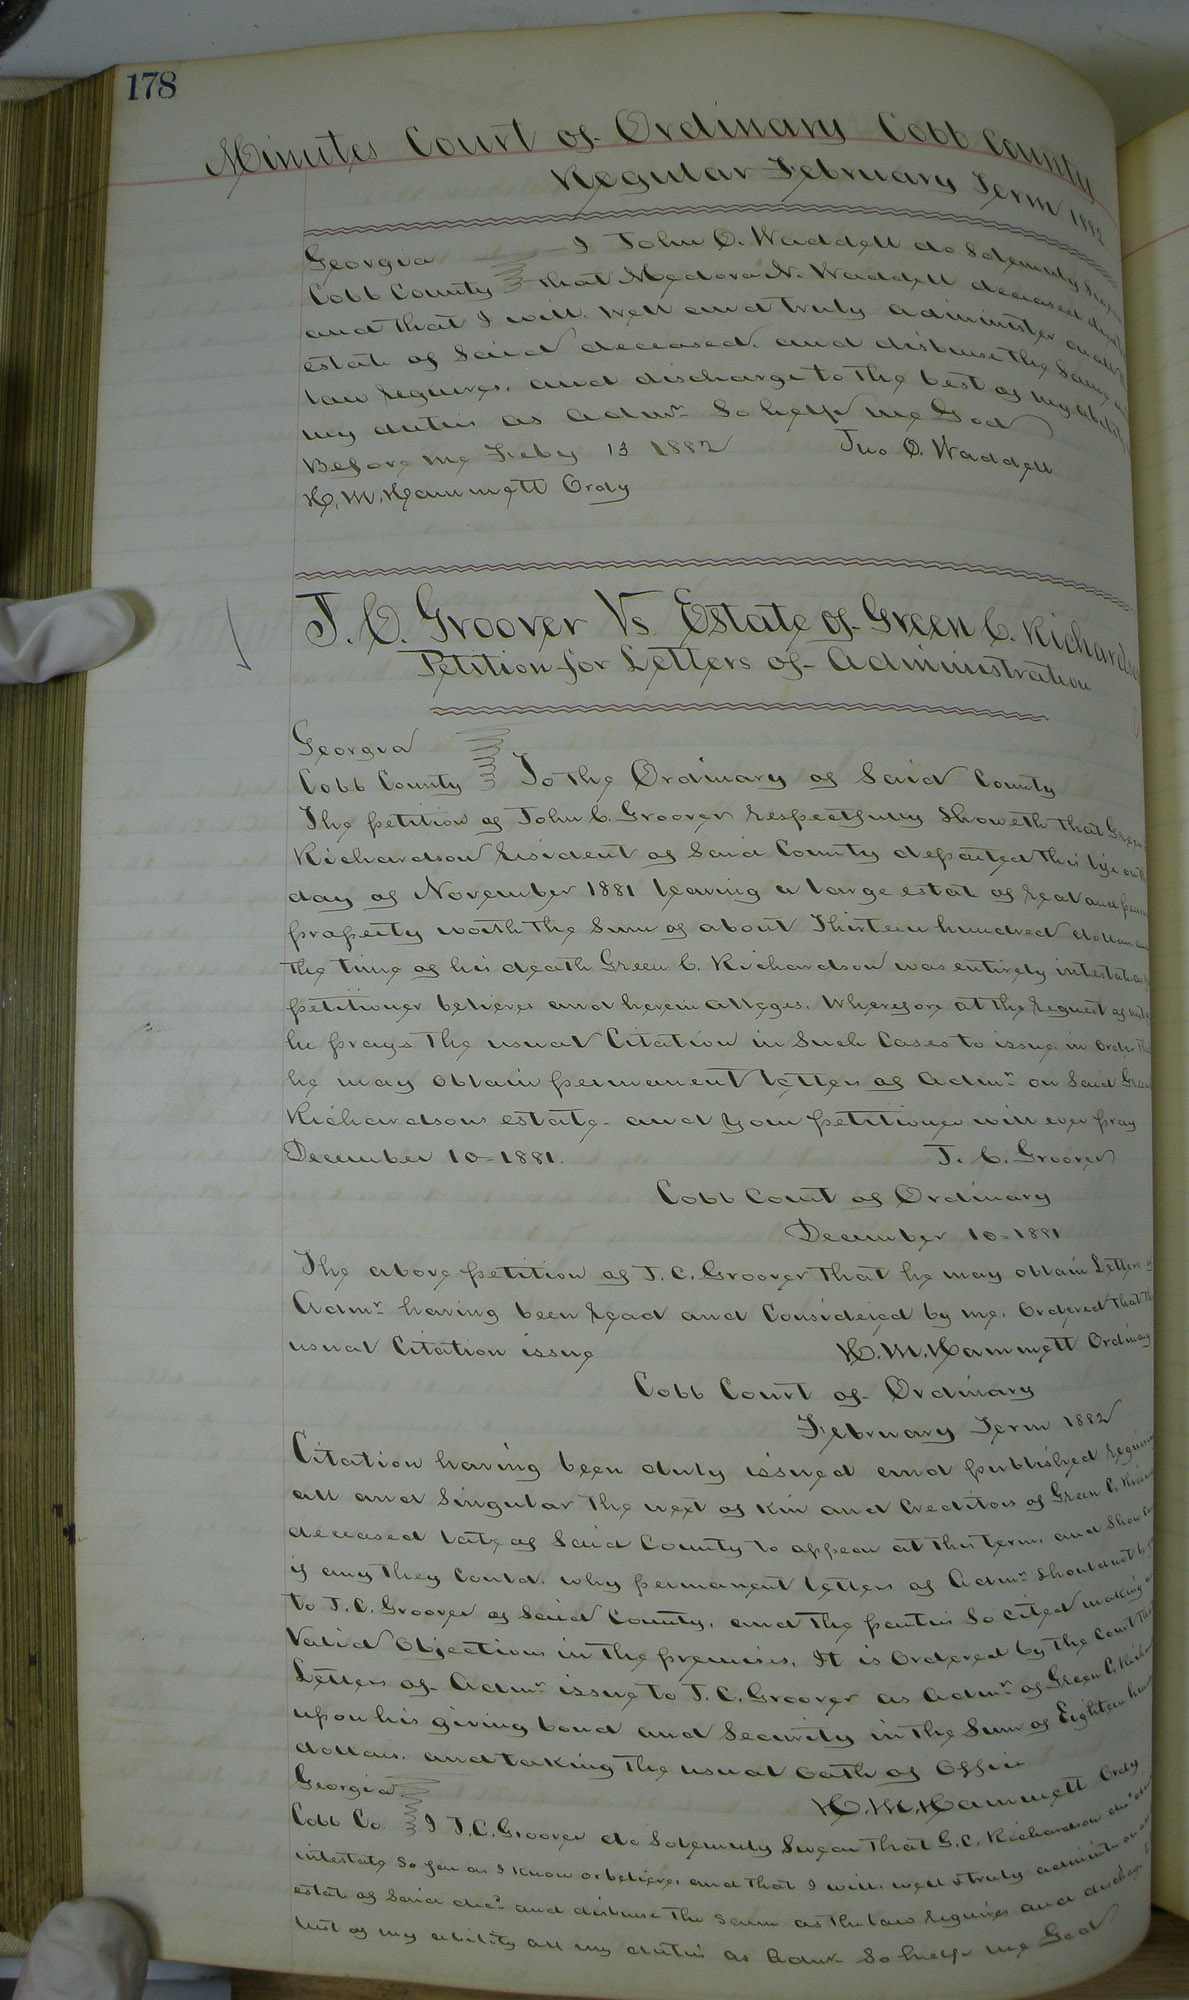 178
Minutes Court of Ordinary Cobb County
Regular February Term 1882
Georgia I John O. Waddell do Solemnly
Cobb County that Medora N. Waddell deceased
and that I will. well and truly administer on all
estate of Said deceased. and disburse the Same
law requires. and discharge to the best of my ability
my duties as admr. So help me God
Before me Feby 13 1882 Jno O. Waddell
H. M. Hammett Ordy
J. C. Groover Vs Estate of Green C. Richardson
Petition for Letters of Administration
Georgia
Cobb County To the Ordinary of Said County
The petition of John C. Groover respectfully Showeth that
Richardson resident of Said County departed this life on
day of November 1881 leaving a large estat of real and
property worth the Sum of about Thirteen hundred dollars
the time of his death Green C. Richardson was entirely intestate
petitioner believes and herein alleges. Wherefore at the request of
he prays the usual Citation in Such Cases to issue in order
he may obtain permanent letters of Admr. on Said
Richardsons estate. and your petitioner will ever pray
December 10=1881. J. C. Groover
Cobb Court of Ordinary
December 10=1881
The above petition of J. C. Groover that he may obtain Letters of
Admr. having been read and Considered by me. Ordered that the
usual Citation issue H. M. Hammett Ordinary
Cobb Court of Ordinary
February Term 1882
Citation having been duly issued and published
all and Singular the next of Kin and Creditors of Green C.
deceased late of Said County to appear at this term. and Show
if any they Could. why permanent letters of Admr. Should not
to J. C. Groover of Said County, and the parties So Cited making
Valid Objections in the premises. It is Ordered by the Court
Letters of Admr. issue to J. C. Groover as Admr. of Green C.
upon his giving bond and Security in the Sum of Eighteen
dollars. and taking the usual oath of Office
Georgia H. M. Hammett Ordy
Cobb Co. I J. C. Groover do Solemnly Swear that G. C. Richardson
intestate So far as I know or believe. and that I will. well & truly
estate of Said decd and disburse the Same as the law requires and discharge
best of my ability all my duties as Admr. So help me God